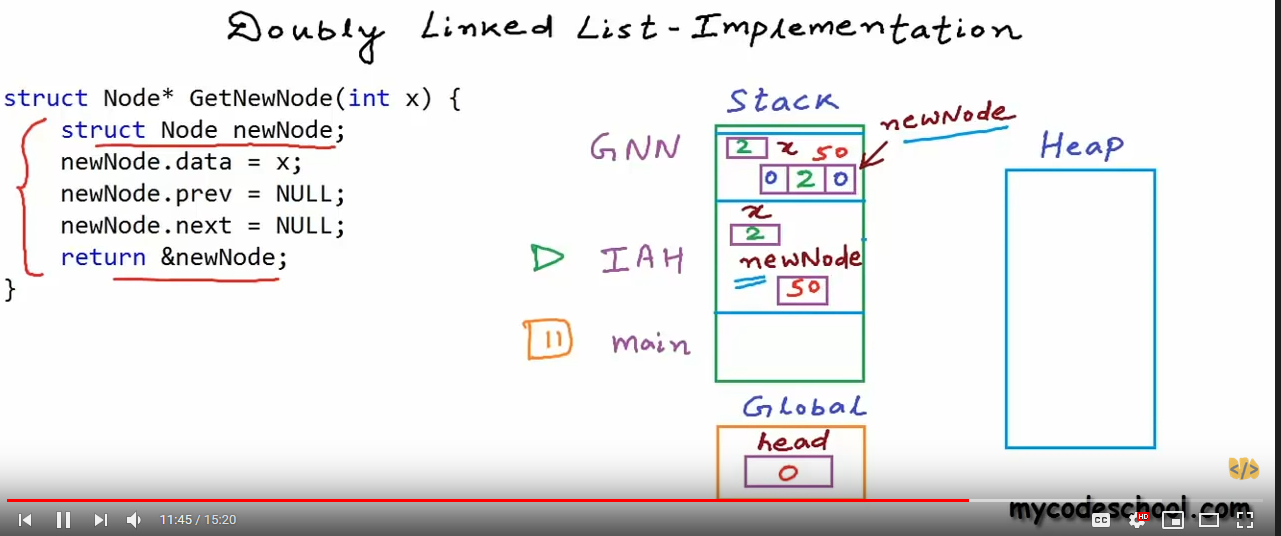 Doubly Linked List - Implementation
struct Node* GetNewNode(int x) {
struct Node newNode;
newNode.data = x;
newNode.prev = NULL;
newNode.next = NULL;
return &newNode;
}
Stack
newNode
GNN
2 x 50
0 2 0
Heap
x
2
IAH
newNode
50
main
Global
head
0
</>
mycodeschool.com
11:45 / 15:20
CC
HD